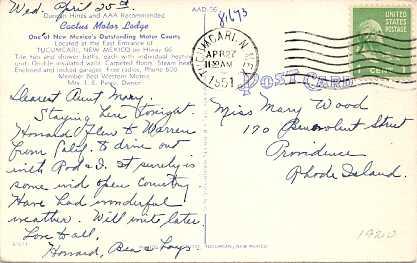 Wed. April 25th
Duncan Hines and AAA Recommended
Cactus Motor Lodge
One of New Mexico's Outstanding Motor Courts
Located at the East Entrance of
TUCUMCARI, NEW MEXICO on Hiway 66
Tile tub and shower baths, each with individual heating
unit. Double insulated walls. Carpeted floors. Steam heat.
Enclosed and locked garages. Free radios. Phone 600.
Member Best Western Motels
Mrs. I. E. Perry, Owner
Dearest Aunt Mary,
Staying here tonight.
Howard flew to Warren
from Calif. to drive out
with Rod & I. It surely is
some wid open country
Have had wonderful
weather. Will write later
Love to all,
Howard, Bea &
AAD-56
81693
TUCUMCARI, N. MEX.
APR 27
11 30 AM
1951
U.S. POSTAGE
1 CENT 1
POST CARD
Miss Mary Wood
170 Benevolent Street
Providence
Rhode Island.
1920
TUCUMCARI, NEW MEXICO